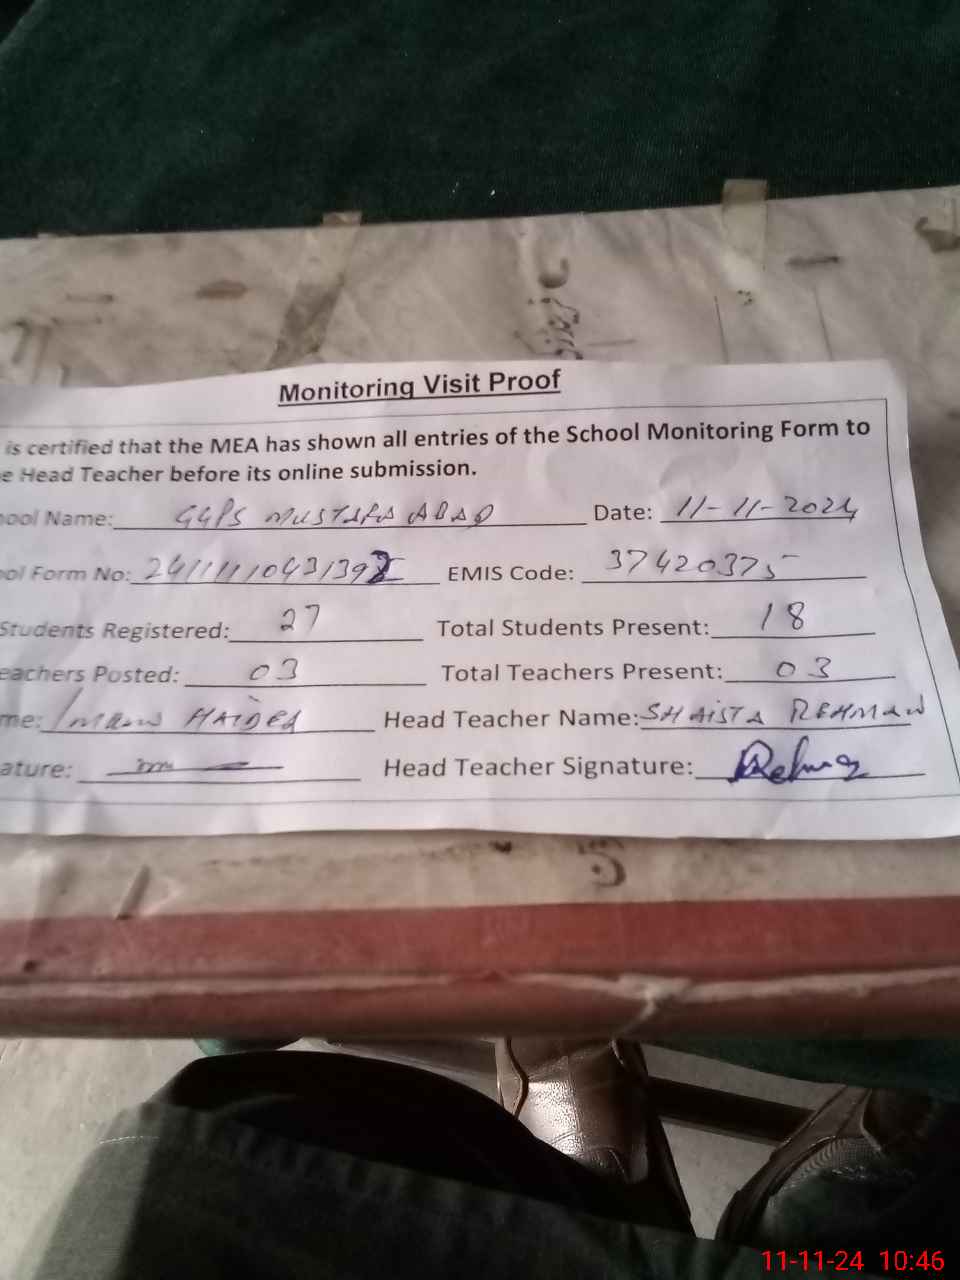 Monitoring Visit Proof
is certified that the MEA has shown all entries of the School Monitoring Form to
e Head Teacher before its online submission.
ool Name: GGPS MUSTAFA ABAD Date: 11-11-2024
ol Form No: EMIS Code: 37420375
Students Registered: 27 Total Students Present: 18
eachers Posted: 03 Total Teachers Present: 03
me: Imran HAIDER Head Teacher Name: SHAISTA REHMAN
ature: Head Teacher Signature:
11-11-24 10:46